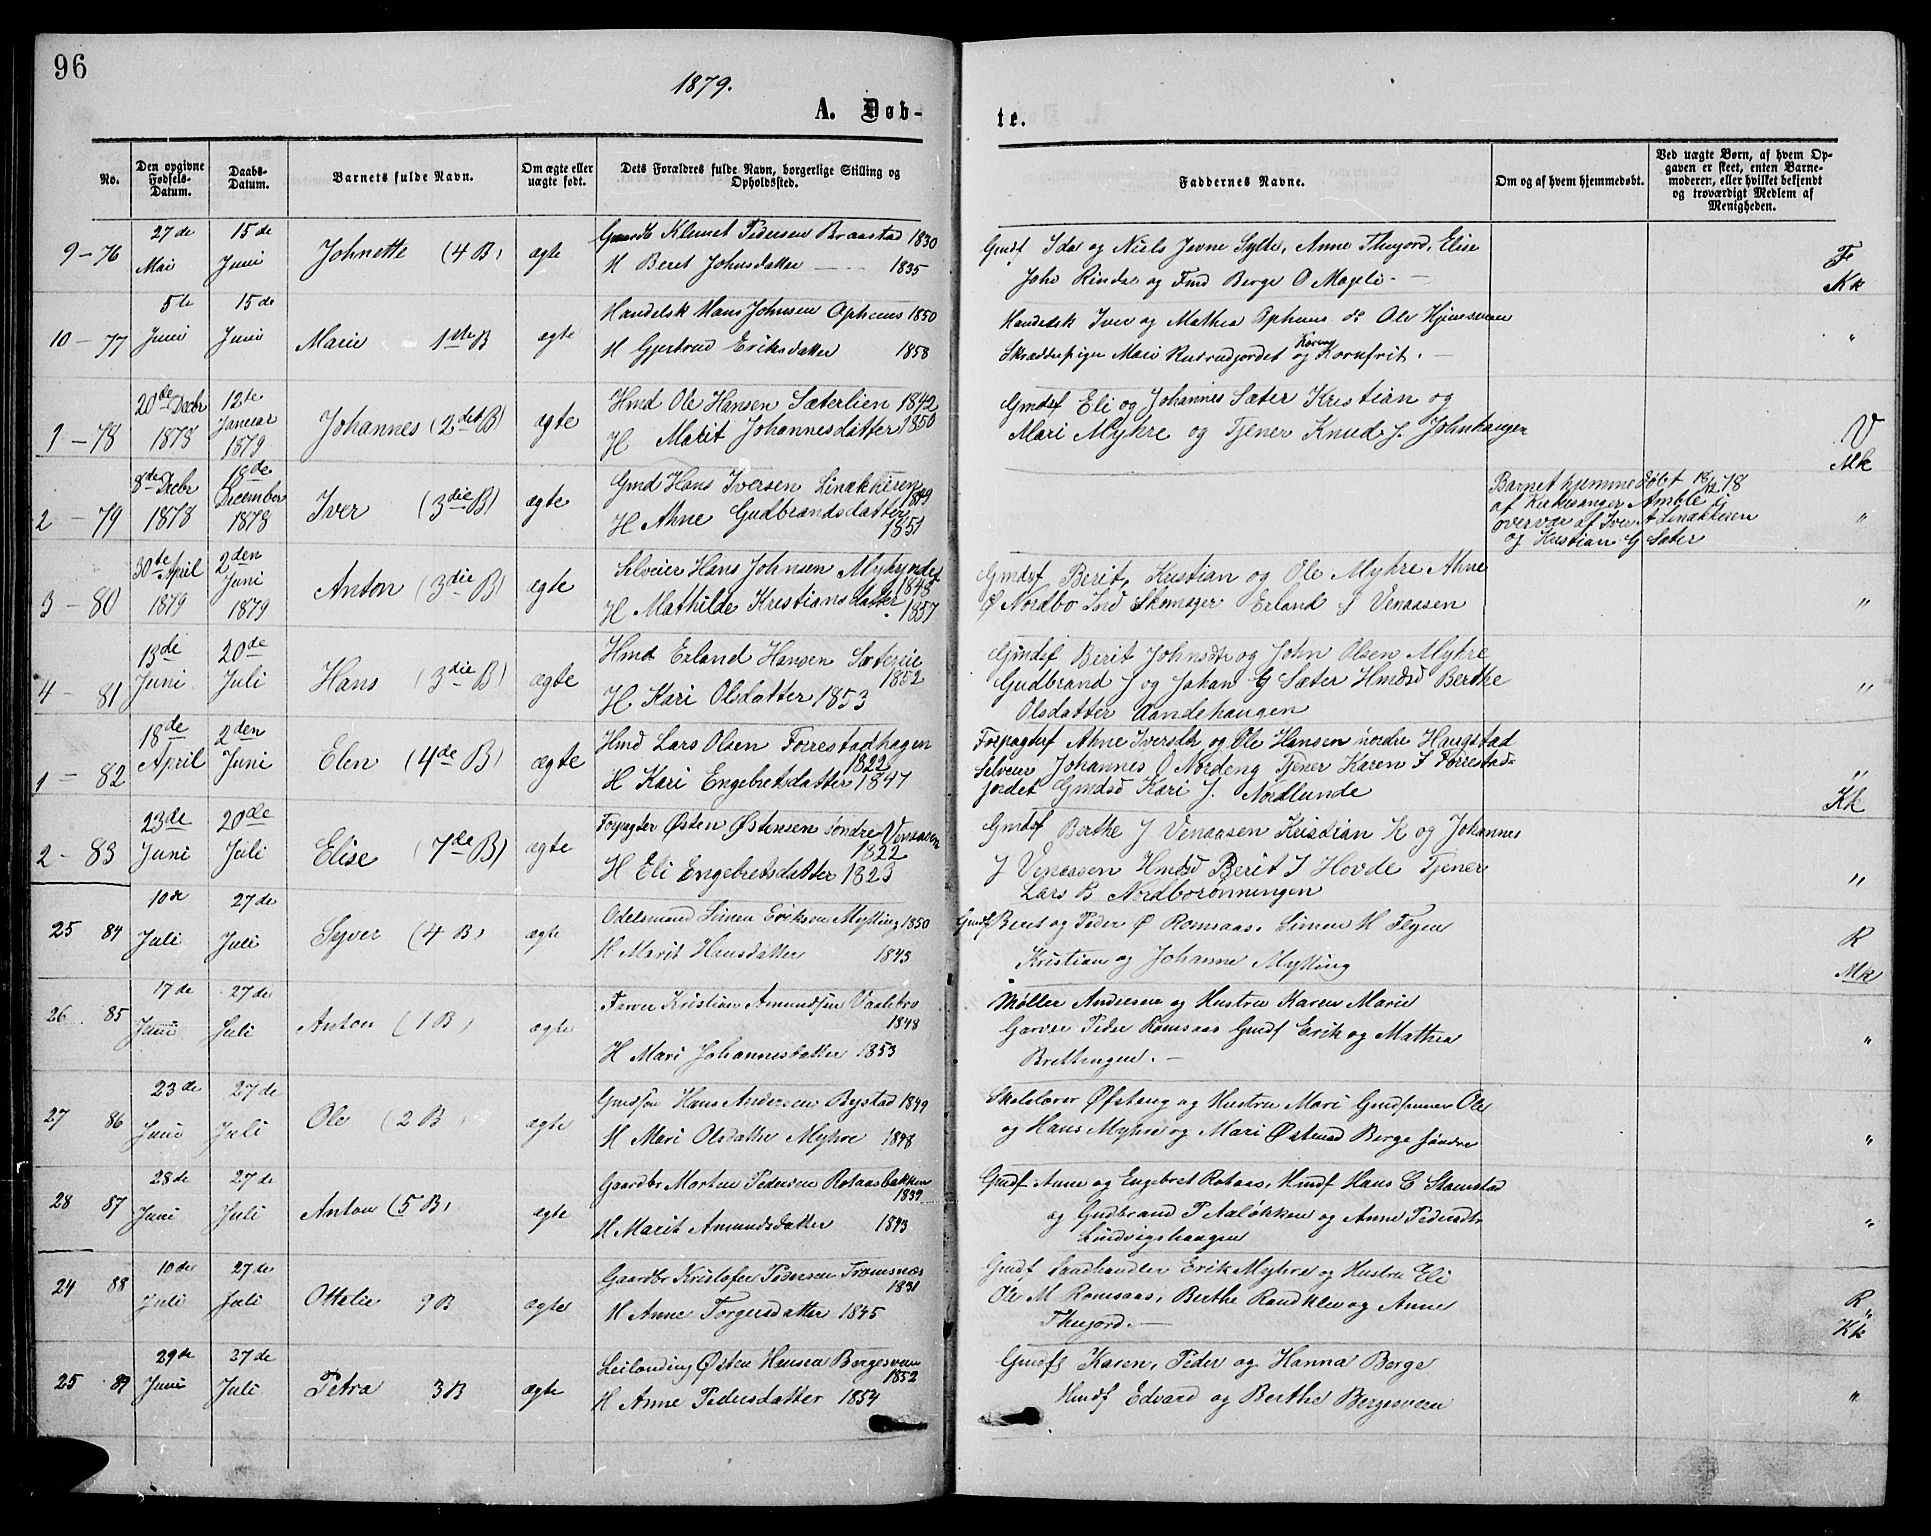 96
1879.
A. Døb-
te.
No.
Den opgivne Fødsels-Datum.
Daabs-Datum.
Barnets fulde Navn.
Om ægte eller uægte født.
Dets Forældres fulde Navn, borgerlige Stilling og Opholdssted.
Faddernes Navne.
Om og af hvem hjemmedøbt.
Ved uægte Børn, af hvem Op-
gaven er skeet, enten Barne-
moderen, eller hvilket bekjendt
og troværdigt Medlem af
Menigheden.
9 - 76 27de Mai 15de Juni Johnette (4 B) ægte
Klemet Pedersen Braastad 1830
H Beret Johnsdatter 1835
Gmdf Ida og Niels Jevne Sylte, Anne Thujord, Elise
Joh Rinde og Berge O Mageli
F
Kk
10 - 77 5te Juni 15de Juni Marie 1ste B ægte
Handelsk Hans Johnsen Opheus 1850
H Gjertrud Eriksdatter 1858
Handelsk Iver og Mathea Opheus Ole
Skrædderpige Mari Rustudjordet og Kornfrit.
"
1 - 78 20de Decbr 1878 12te Januar 1879 Johannes (2det B) ægte
Hmd Ole Hansen Sæterlien 1842
H Marit Johannesdatter 1850
Gmdsf Eli og Johannes Sæter Kristian og
Mari Myhre og Tjener Knud J. Johnhaugen
V
Mk
2 - 79 8de Decbr 1878 18de December 1878 Iver (3die B) ægte
Gmd Hans Iversen Linækkeren
H Ahne Gudbrandsdatter 1851
Barnet hjemmedøbt 18/12 78
af Kirkesanger Amble i
overvær af Iver A Linækkeren
og Kristian G Sæter
"
3 - 80 30te April 1879 2den Juni 1879 Anton (3die B) ægte
Selveier Hans Johnsen 1843
H Mathilde Kristiansdatter 1857
Gmdsf Berit, Kristian og Ole Myhre Ahne
Ø Nordbo Ind Skomager Erland S Venaasen
"
4 - 81 13de Juni 20de Juli Hans (3die B) ægte
Hmd Erland Hansen Sætereie 1852
H Kari Olsdatter 1853
Gmdsf Berit Johnsdtr og John Olsen Myhre
Gudbrand J og Johan G Sæter Hmdsd Berthe
Olsdatter Aandehaugen
"
1 - 82 18de April 2den Juni Elen (4de B) ægte
Hmd Lars Olsen Forrestadhagen 1822
H Kari Engebretsdatter 1847
Forpagterf Ahne Iversdtr og Ole Hansen nordre Haugstad
Selveier Johannes O Nordeng Tjener Karen I Forrestad-
jordet Gmdsd Kari J. Nordlunde
"
Kk
2 - 83 23de Juni 20de Juli Elise (7de B) ægte
Forpagter Østen Østensen søndre Venaasen 1822
H Eli Engebretsdatter 1823
Gmdsf Berthe J Venaasen Kristian K og Johannes
J Venaasen Hmdsd Berit I Hovde Tjener
Lars B Nordborønningen
"
25 84 10de Juli 27de Juli Syver (4 B) ægte
Odelsmand Simen Eriksen Mytting 1850
H Marit Hansdatter 1843
Gmdf Beret og Peder Ø Romsaas, Simen H Flyen
Kristian og Johanne Mytting
R
Mk
26 85 17de Juni 27de Juli Anton (1 B) ægte
Farver Kristian Amundsen Vaalebro 1848
H Mari Johannesdatter 1853
Møller Andersen og Hustru Karen Marie
Garver Peder Romsaas Gmdf Erik og Mathea
Brettingen.
"
27 86 23de Juni 27de Juli Ole (2 B) ægte
Gmdsøn Hans Andersen Bystad 1849
H Mari Olsdatter Myhre 1848
Skolelærer Øfsteng og Hustru Mari Gmdsønner Ole
og Hans Myhre og Mari Østensd Berge søndre
"
28 87 28de Juni 27de Juli Anton (5 B) ægte
Gaardbr Morten Pedersen Rotaasbakken 1839
H Marit Amundsdatter 1843
Gmdf Anne og Engebret Rotaas, Hmdf Hans C Stamstad
og Gudbrand P Aaløkken og Anne Pedersdtr
Lindvigshaugen
"
24 88 10de Juli 27de Juli Ottelie 9 B ægte
Gaardbr Kristofer Pedersen Tromsnæs 1831
H Anne Torgersdatter 1845
Gmdf Landhandler Erik Myhre og Hustru Eli
Ole M Romsaas, Berthe Randklev og Anne
Thujord.
R
Kk
25 89 29de Juni 27de Juli Petra 3 B ægte
Leilending Østen Hansen Bergesveen 1852
H Anne Pedersdatter 1854
Gmdfs Karen, Peder og Hanna Berge
Hmdf Edvard og Berthe Bergesveen
"